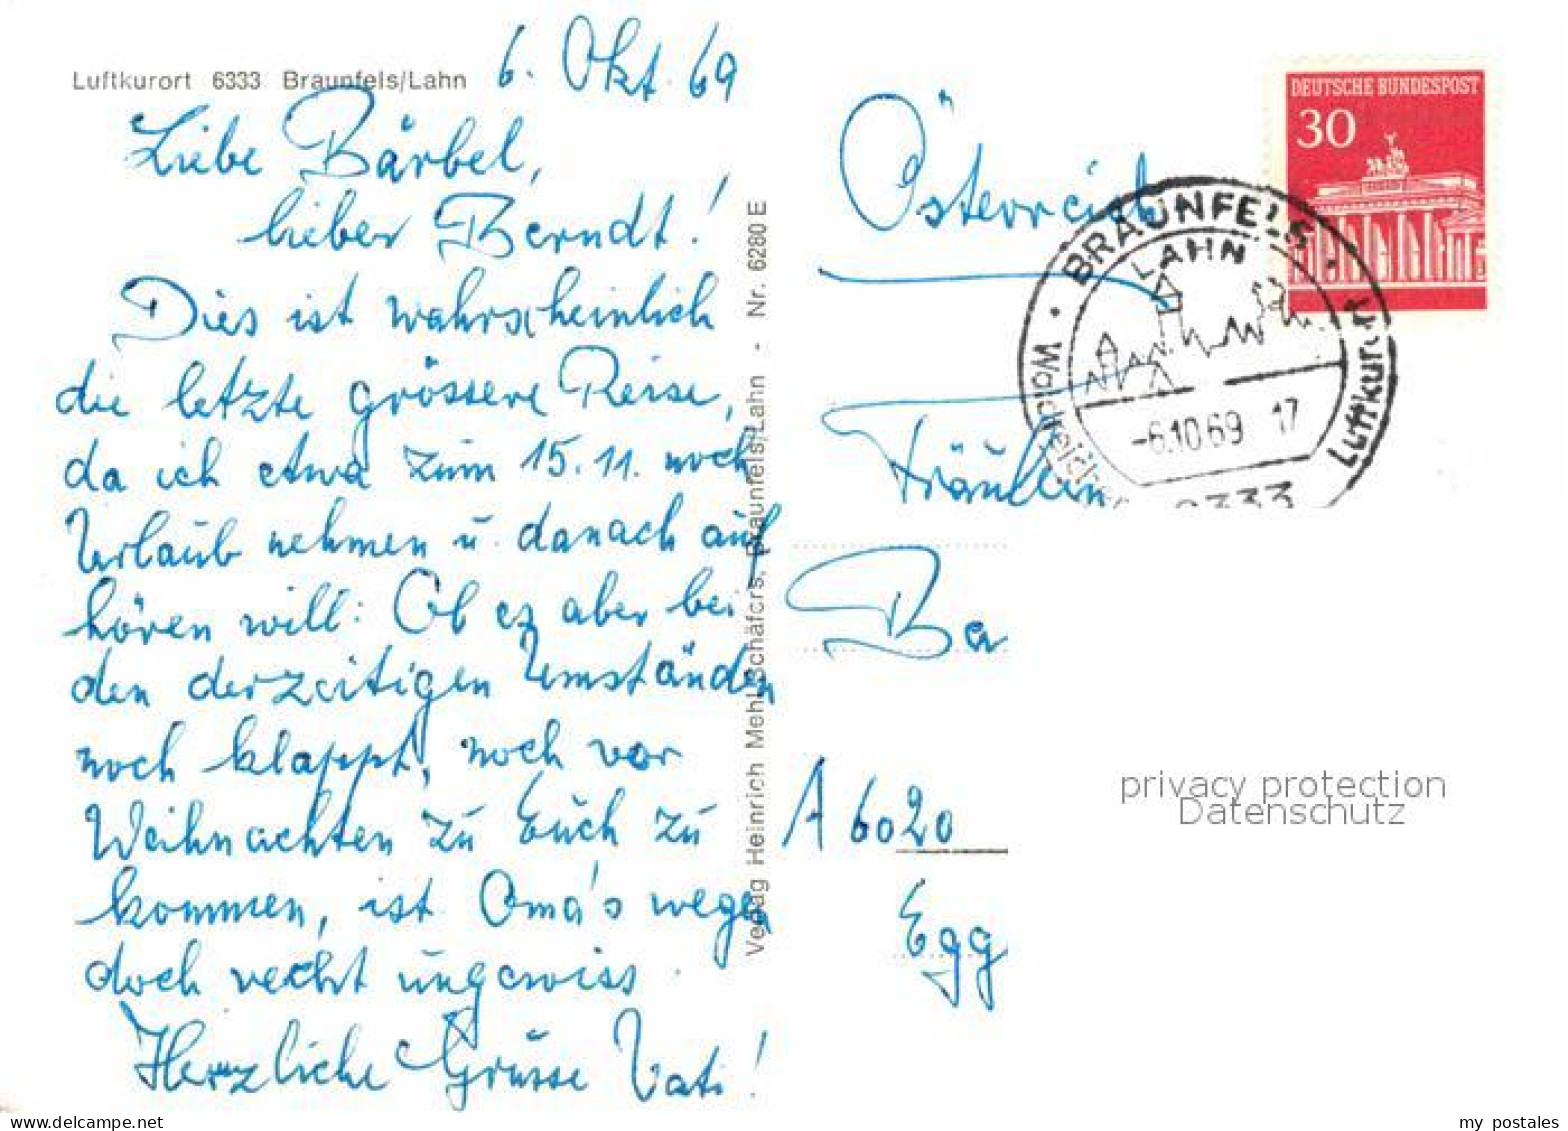 Luftkurort 6333 Braunfels/Lahn
6. Okt. 69
Liebe Bärbel,
lieber Berndt!
Dies ist wahrscheinlich
die letzte grössere Reise,
da ich etwa zum 15.11. noch
Urlaub nehmen u. danach auf
hören will. Ob es aber bei
den derzeitigen Umständen
noch klappt, noch vor
Weihnachten zu Euch zu
kommen, ist Oma's wegen
doch recht ungewiss.
Herzliche Grüsse Vati!
Verlag Heinrich Mehl, Schäfers, Braunfels/Lahn - Nr. 6280 E
Österreich
Fräulein
Ba
A 6020
Egg
DEUTSCHE BUNDESPOST
30
BRAUNFELS
LAHN
Waldreicher
Luftkurort
-6.10.69 17
6333
privacy protection
Datenschutz
my postales